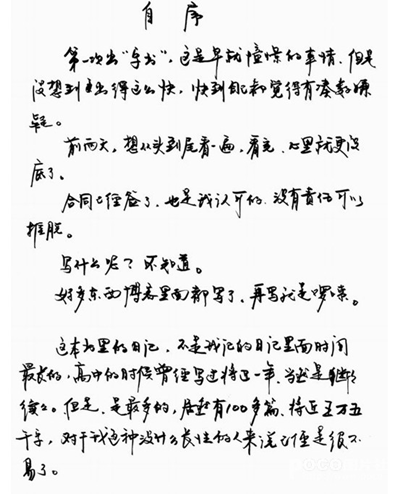 自序
第一次出“手书”，这是早就憧憬的事情，但是
没想到出得这么快，快到自己都觉得有凑数嫌
疑。
前两天，想从头到尾看一遍，看完，心里就更没
底了。
合同已经签了，也是我认可的，没有责任可以
推脱。
写什么呢？不知道。
好多东西博客里面都写了，再写就是啰嗦。
这本书里的日记，不是我记的日记里面时间
最长的，高中的时候曾经写过将近一年，当然是断断
续续。但是，是最多的，居然有100多篇，将近五万五
千字，对于我这种没什么长性的人来说已经是很不
易了。